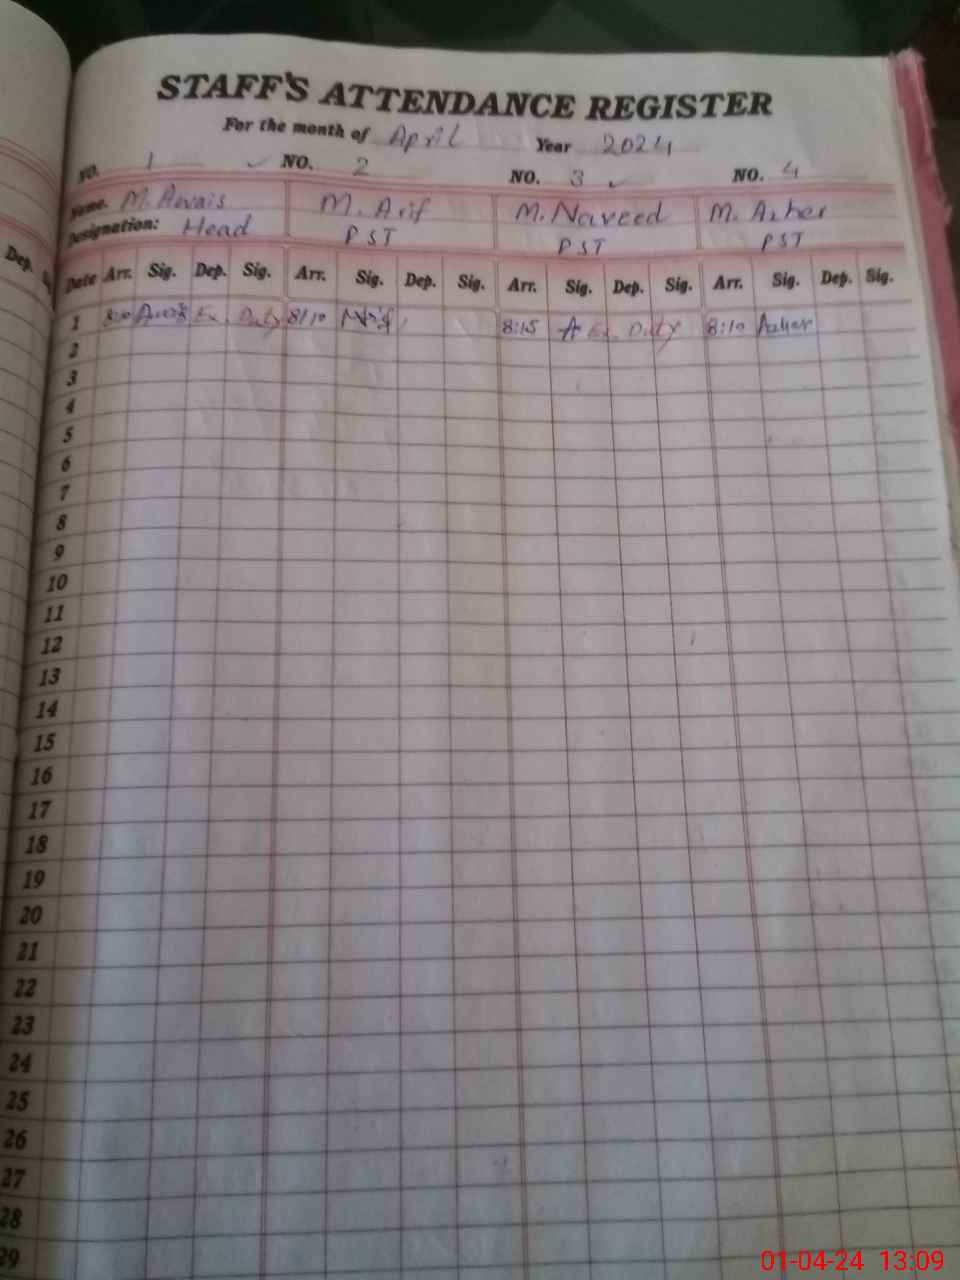 STAFF'S ATTENDANCE REGISTER
For the month of April Year 2024
NO. 1 NO. 2 NO. 3 NO. 4
Name. M. Awais M. Arif M. Naveed M. Azher
Designation: Head PST PST PST
Dep.
Date Arr. Sig. Dep. Sig. Arr. Sig. Dep. Sig. Arr. Sig. Dep. Sig. Arr. Sig. Dep. Sig.
1 8:10 Awais Ex. Duty 8:10 Arif 8:15 A Ex. Duty 8:10 Azher
2
3
4
5
6
7
8
9
10
11
12
13
14
15
16
17
18
19
20
21
22
23
24
25
26
27
28
29
01-04-24 13:09